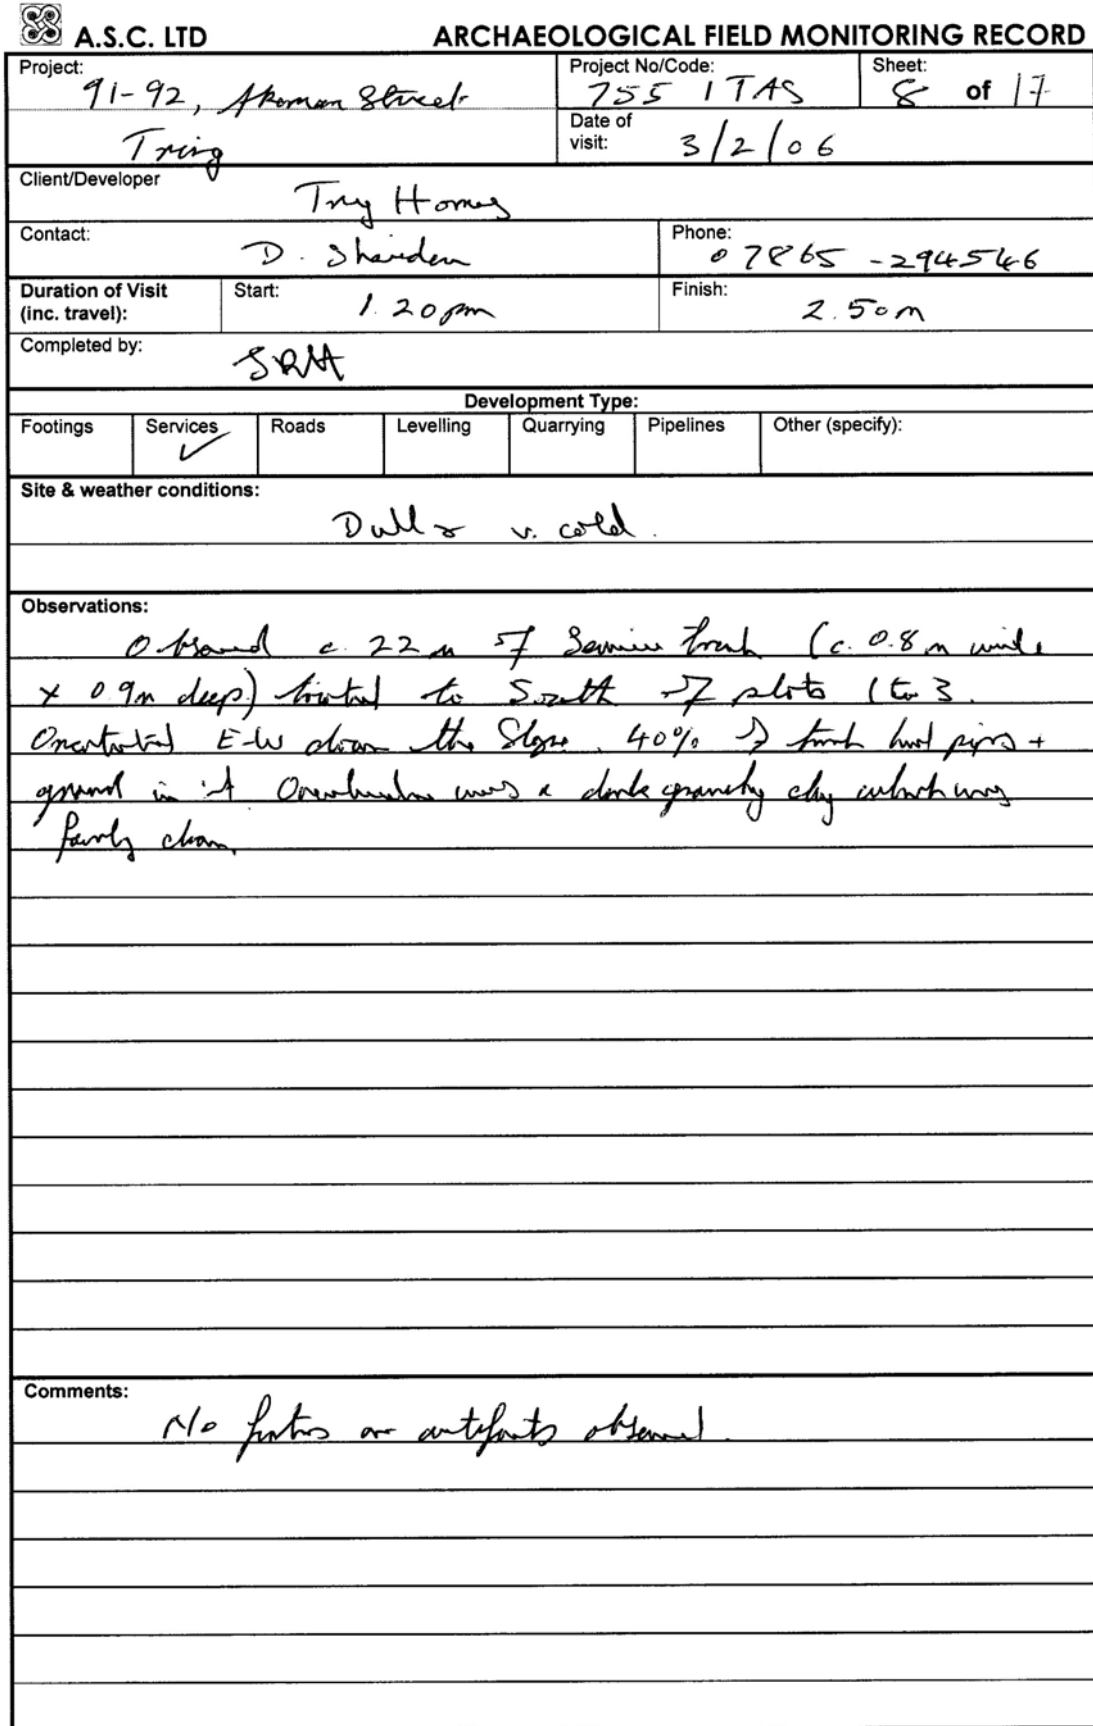 A.S.C. LTD ARCHAEOLOGICAL FIELD MONITORING RECORD
Project: 91-92, Akeman Street
Tring
Project No/Code: 755 / TAS
Sheet: 8 of 17
Date of visit: 3/2/06
Client/Developer Try Homes
Contact: D. Phone: 07865-294546
Duration of Visit (inc. travel): Start: 1.20pm Finish: 2.50m
Completed by:
Development Type:
Footings Services ✓ Roads Levelling Quarrying Pipelines Other (specify):
Site & weather conditions:
Dull & v. cold.
Observations:
Observed c. 22m of Service trench (c. 0.8m wide
x 0.9m deep) to South of plots 1 to 3.
Orientated E-W down the Slope. 40% of trench had pipes +
gravel in it Overburden was a dark gravelly clay which was
fairly clean.
Comments:
No features or artefacts observed.